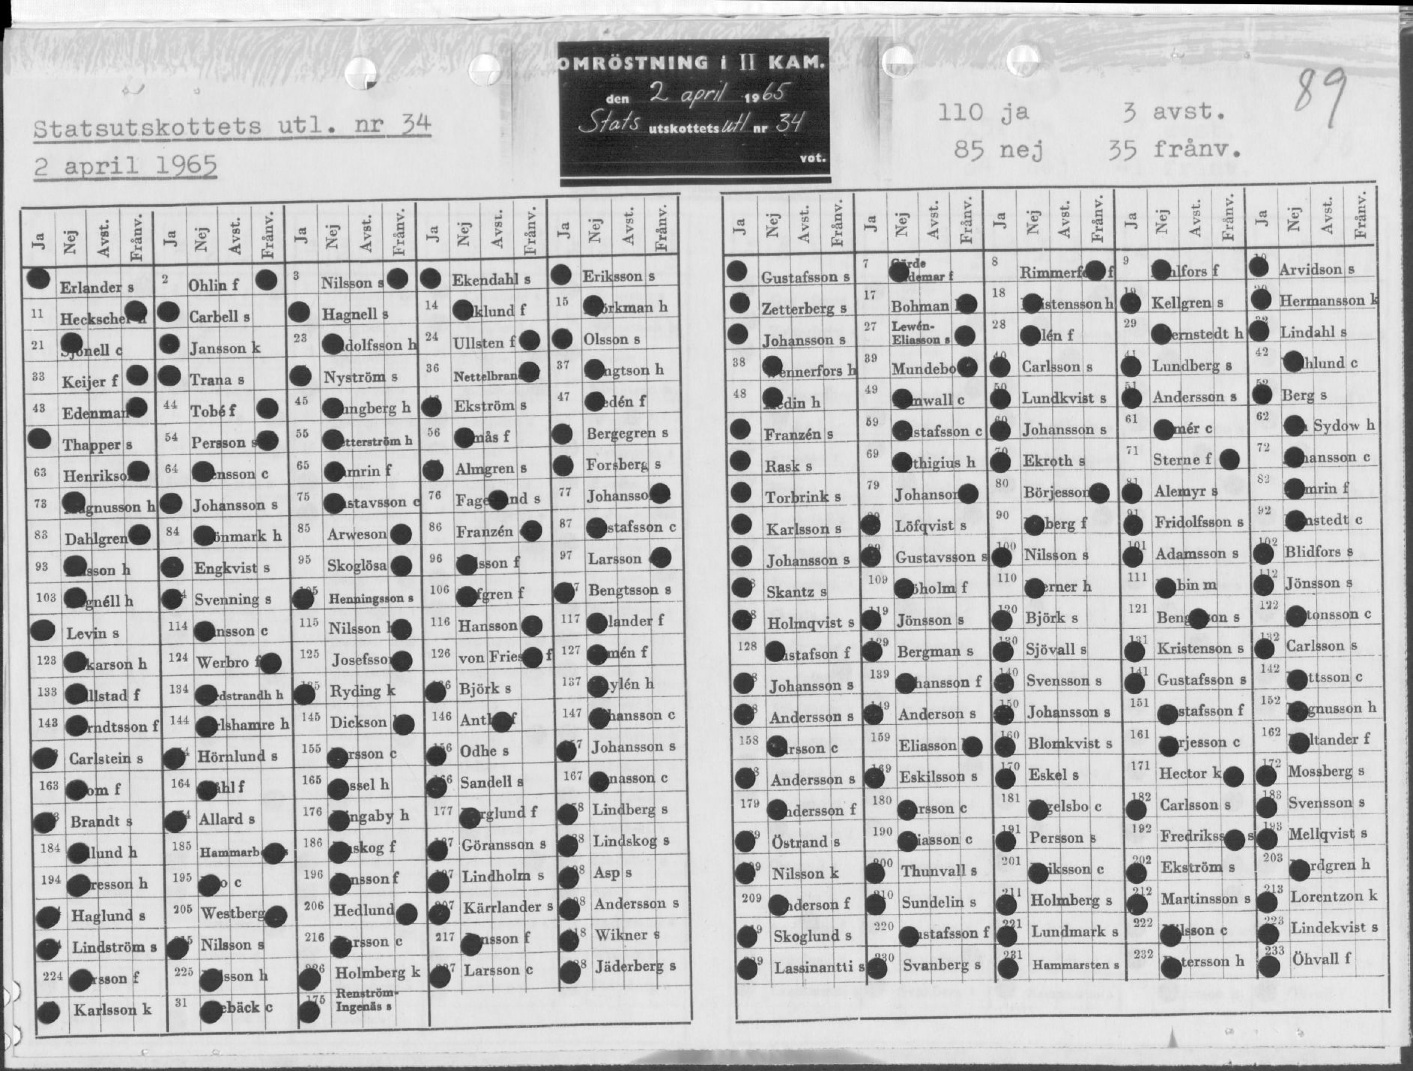 OMRÖSTNING i II KAM.
den 2 april 1965
Stats utskottets utl nr 34
vot.
89
Statsutskottets utl. nr 34
2 april 1965
110 ja 3 avst.
85 nej 35 frånv.
Ja Nej Avst. Frånv. Ja Nej Avst. Frånv. Ja Nej Avst. Frånv. Ja Nej Avst. Frånv. Ja Nej Avst. Frånv.
Erlander s 2 Ohlin f 3 Nilsson s Ekendahl s Eriksson s
11 Heckscher Carbell s Hagnell s 14 klund f 15 rkman h
21 Sjönell c Jansson k 23 dolfsson h 24 Ullsten f Olsson s
33 Keijer f Trana s Nyström s 36 Nettelbran 37 ngtson h
43 Edenman 44 Tobé f 45 ngberg h Ekström s 47 edén f
Thapper s 54 Persson s 55 tterström h 56 mås f Bergegren s
63 Henrikso 64 nsson c 65 mrin f Almgren s Forsberg s
73 gnusson h Johansson s 75 stavsson c 76 Fage nd s 77 Johansso
83 Dahlgren 84 önmark h 85 Arweson 86 Franzén 87 stafsson c
93 sson h Engkvist s 95 Skoglösa 96 sson f 97 Larsson
103 gnéll h Svenning s Henningsson s 106 fgren f Bengtsson s
Levin s 114 nsson c 115 Nilsson 116 Hansson 117 lander f
123 karson h 124 Werbro f 125 Josefsso 126 von Fries f 127 mén f
133 llstad f 134 dstrandh h Ryding k Björk s 137 ylén h
143 rndtsson f 144 rlshamre h 145 Dickson 146 Ant f 147 hansson c
Carlstein s Hörnlund s 155 rsson c Odhe s Johansson s
163 om f 164 ahl f 165 ssel h Sandell s 167 nasson c
Brandt s Allard s 176 ngaby h 177 rglund f Lindberg s
184 lund h 185 Hammarb 186 skog f Göransson s Lindskog s
194 resson h 195 o c 196 nsson f Lindholm s Asp s
Haglund s 205 Westberg 206 Hedlund Kärrlander s Andersson s
Lindström s Nilsson s 216 rsson c 217 nsson f Wikner s
224 rsson f 225 sson h Holmberg k Larsson c Jäderberg s
Karlsson k 31 ebäck c 175 Renström-
Ingenäs s
Ja Nej Avst. Frånv. Ja Nej Avst. Frånv. Ja Nej Avst. Frånv. Ja Nej Avst. Frånv. Ja Nej Avst. Frånv.
Gustafsson s 7 Gärde
demar f 8 Rimmerf f 9 hlfors f Arvidson s
Zetterberg s 17 Bohman 18 istensson h Kellgren s Hermansson k
Johansson s 27 Lewén-
Eliasson s 28 lén f 29 ernstedt h Lindahl s
38 ennerfors h 39 Mundebo Carlsson s Lundberg s 42 hlund c
48 edin h 49 mwall c Lundkvist s Andersson s Berg s
Franzén s 59 stafsson c Johansson s 61 mér c 62 n Sydow h
Rask s 69 thigius h Ekroth s 71 Sterne f 72 hansson c
Torbrink s 79 Johanson 80 Börjesson Alemyr s 82 mrin f
Karlsson s Löfqvist s 90 berg f Fridolfsson s 92 nstedt c
Johansson s Gustavsson s 100 Nilsson s 101 Adamsson s 102 Blidfors s
Skantz s 109 holm f 110 erner h 111 bin m 112 Jönsson s
Holmqvist s 119 Jönsson s 120 Björk s 121 Beng on s 122 tonsson c
128 stafson f 129 Bergman s 130 Sjövall s 131 Kristenson s 132 Carlsson s
Johansson s 139 hansson f 140 Svensson s 141 Gustafsson s 142 ttsson c
Andersson s 149 Anderson s 150 Johansson s 151 stafsson f 152 gnusson h
158 rsson c 159 Eliasson 160 Blomkvist s 161 rjesson c 162 ltander f
Andersson s 169 Eskilsson s 170 Eskel s 171 Hector k 172 Mossberg s
179 ndersson f 180 rsson c 181 gelsbo c 182 Carlsson s 183 Svensson s
Östrand s 190 iasson c 191 Persson s 192 Fredrikss s 193 Mellqvist s
Nilsson k 200 Thunvall s 201 iksson c 202 Ekström s 203 rdgren h
209 nderson f 210 Sundelin s 211 Holmberg s 212 Martinsson s 213 Lorentzon k
Skoglund s 220 stafsson f 221 Lundmark s 222 lsson c 223 Lindekvist s
Lassinantti s 230 Svanberg s 231 Hammarsten s 232 tersson h 233 Öhvall f